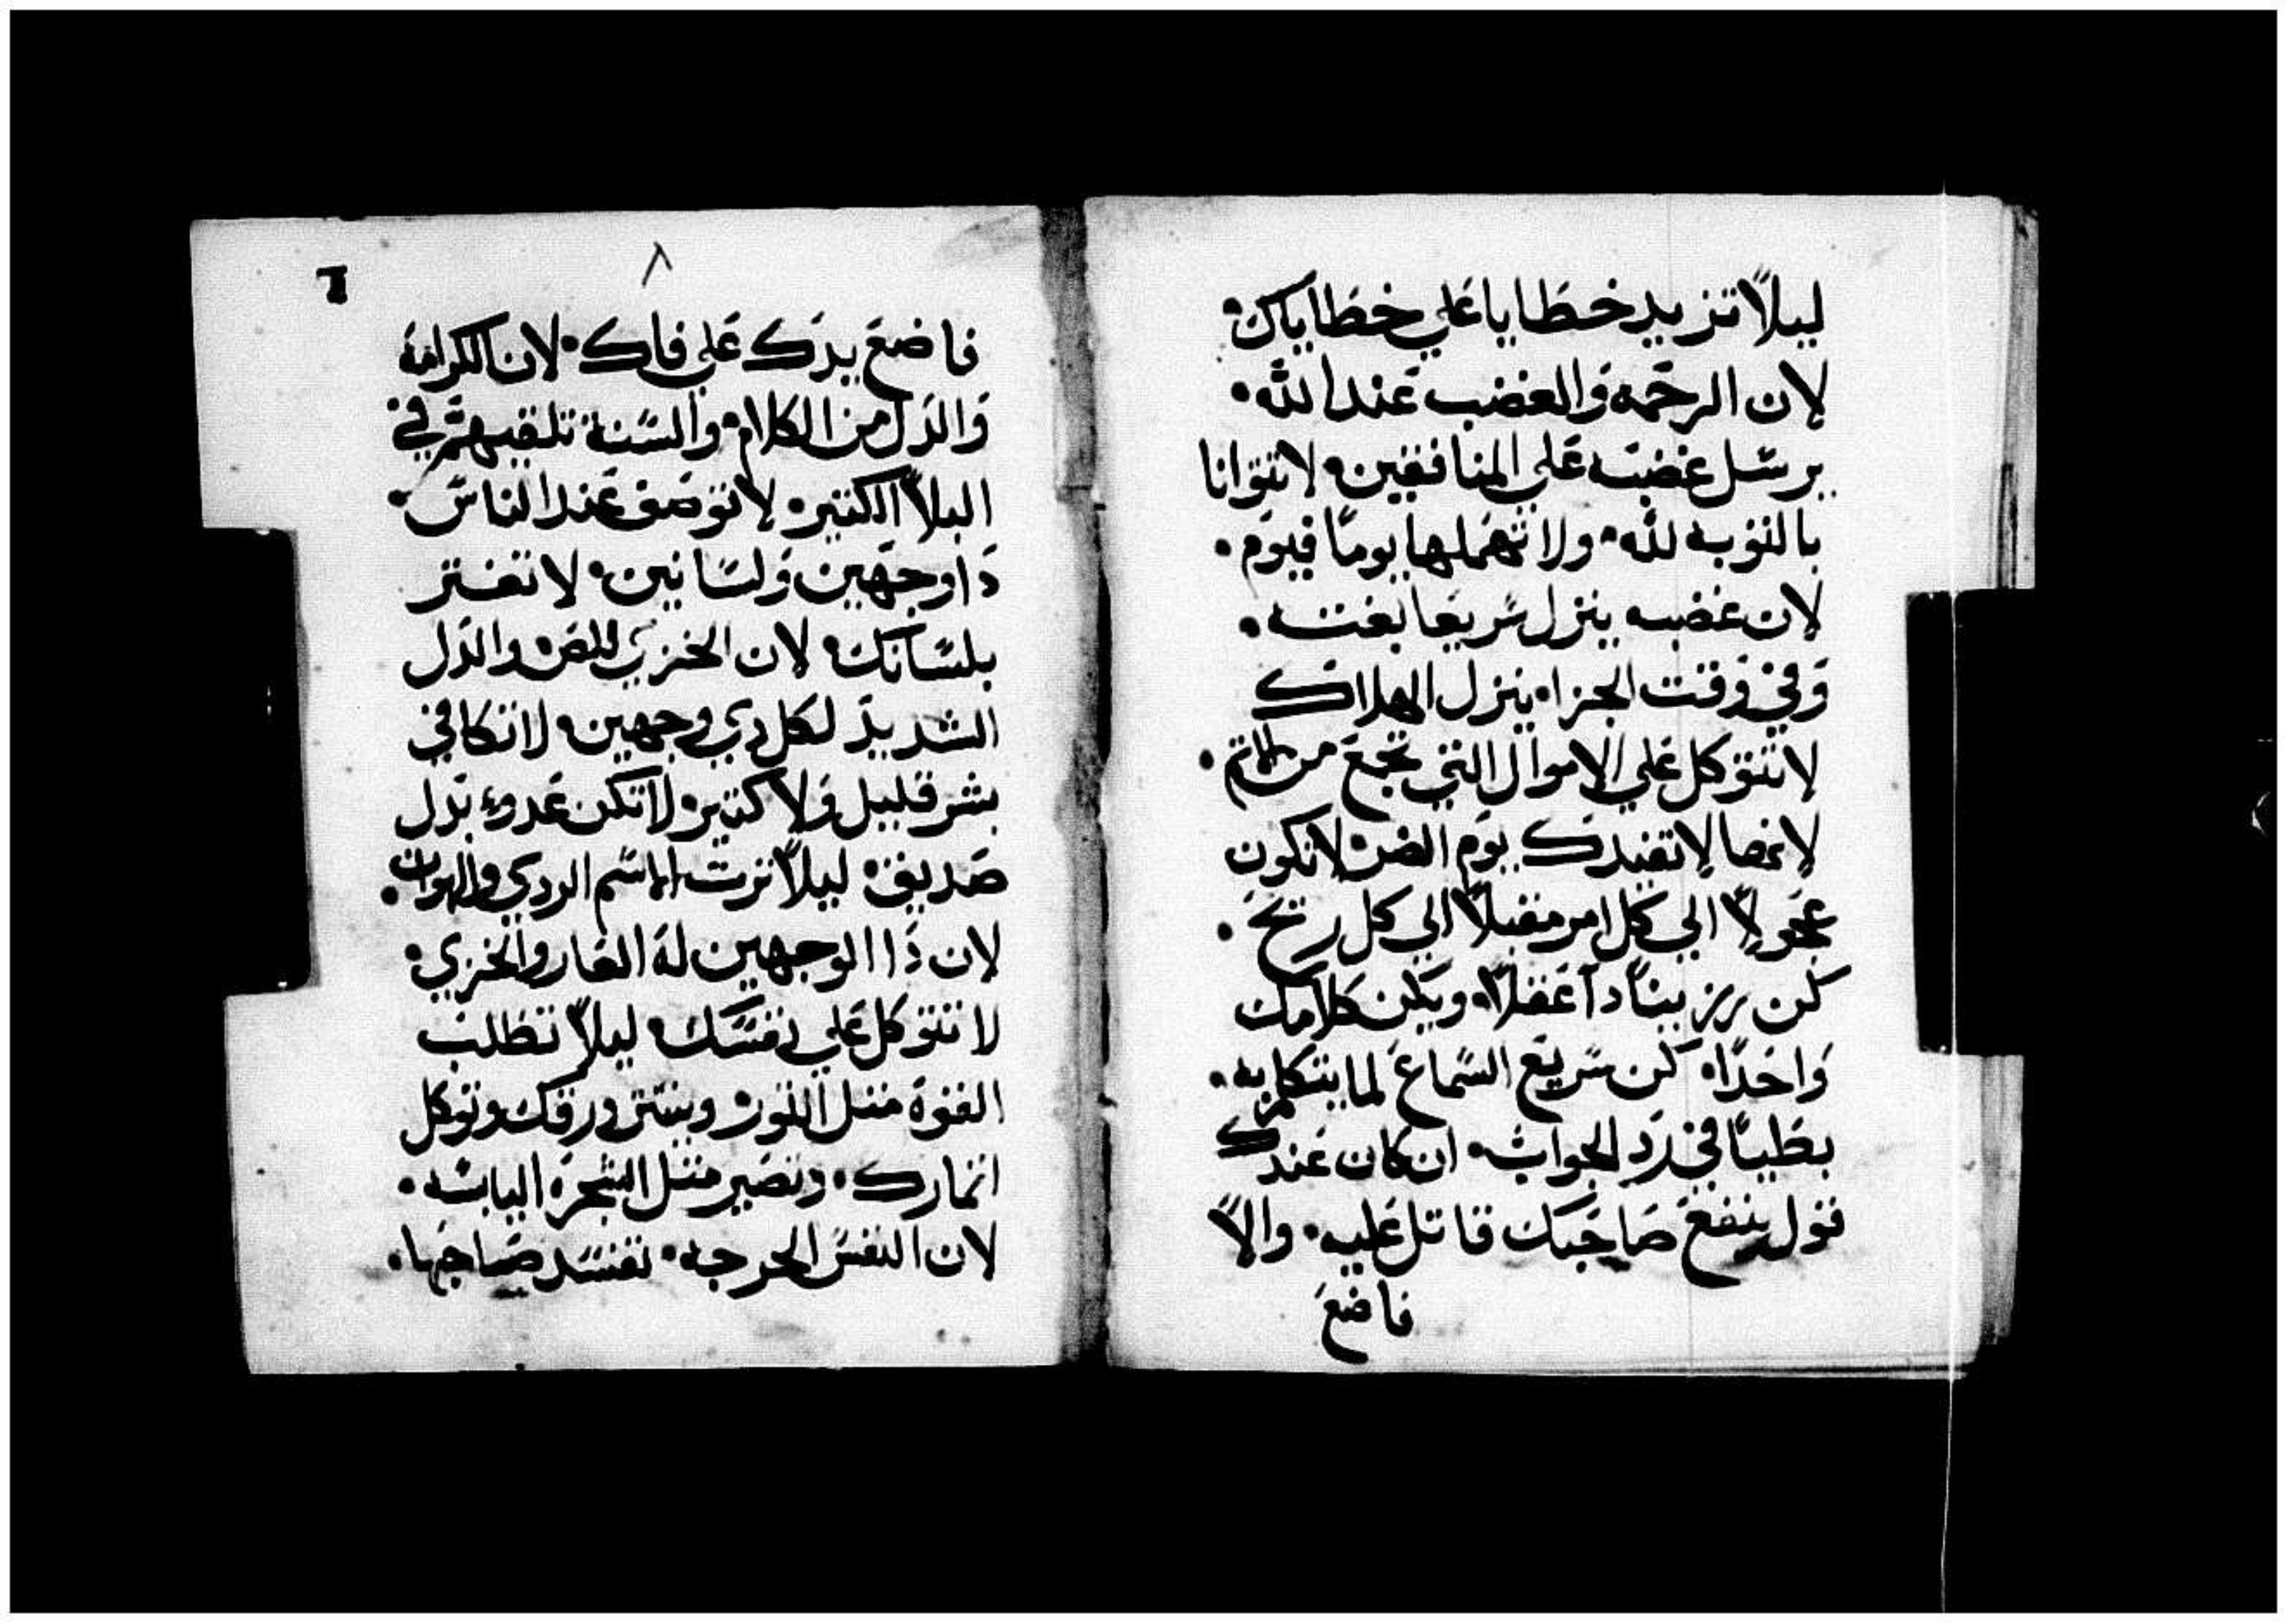 ليلاً تزيد خطايا علي خطاياك
لان الرحمه والغضب عند الله
يرسل غضبه علي المنافقين لا تتوانا
بالتوبه لله ولا تهملها يوماً فيوم
لان غضبه ينزل سريعا بغتته
وفي وقت الجزا ينزل الهلاك
لا تتوكل علي الاموال التي تجمع من الاتم
لانها لا تفيدك يوم الضر لا تكون
عجولاً الي كل امر مقبلاً الي كل ريح
كن رزيناً دا عقلاً ويكن كلامك
واحداً كن سريع السماع لما يتكلم به
بطياً في رد الجواب ان كان عندك
قول ينفع صاحبك قاتل عليه والاً
فاضع
٨
فاضع يدك علي فاك لان الكرامة
والدل من الكلام والسنة تلقيهم في
البلاً الكتير لا توصف عند الناس
دا وجهين ولسانين لا تعتر
بلسانك لان الخزي للص والدل
الشديد لكل دي وجهين لا تكافي
بشر قليل ولا كتير لا تكن عدوء بدل
صديق ليلاً ترت الاسم الردي والهوان
لان دا الوجهين له العار والخزي
لا تتوكل علي نفسك ليلاً تطلب
القوة متل التور وينتتر ورقك وتوكل
اتمارك وتصير متل الشجره اليابسه
لان النفس الحرجه تفسد صاحبها